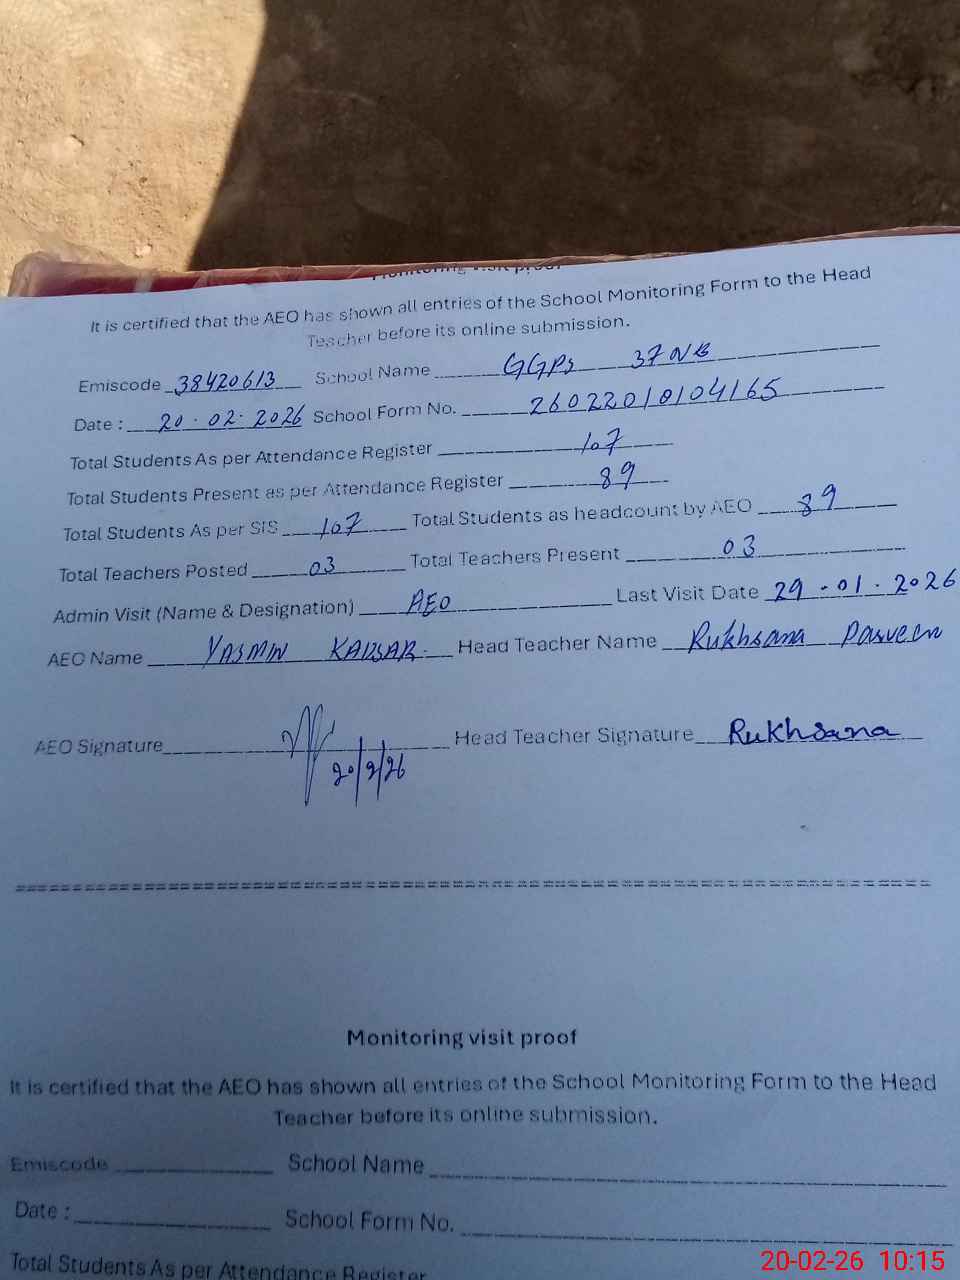 Monitoring visit proof
It is certified that the AEO has shown all entries of the School Monitoring Form to the Head
Teacher before its online submission.
Emiscode 38420613 School Name GGPS 37 NB
Date : 20.02.2026 School Form No. 26022010104165
Total Students As per Attendance Register 107
Total Students Present as per Attendance Register 89
Total Students As per SIS 107 Total Students as headcount by AEO 89
Total Teachers Posted 03 Total Teachers Present 03
Admin Visit (Name & Designation) AEO Last Visit Date 29-01-2026
AEO Name YASMIN KAUSAR. Head Teacher Name Rukhsana Parveen
AEO Signature 20/2/26 Head Teacher Signature Rukhsana
Monitoring visit proof
It is certified that the AEO has shown all entries of the School Monitoring Form to the Head
Teacher before its online submission.
Emiscode School Name
Date : School Form No.
Total Students As per Attendance Register
20-02-26 10:15